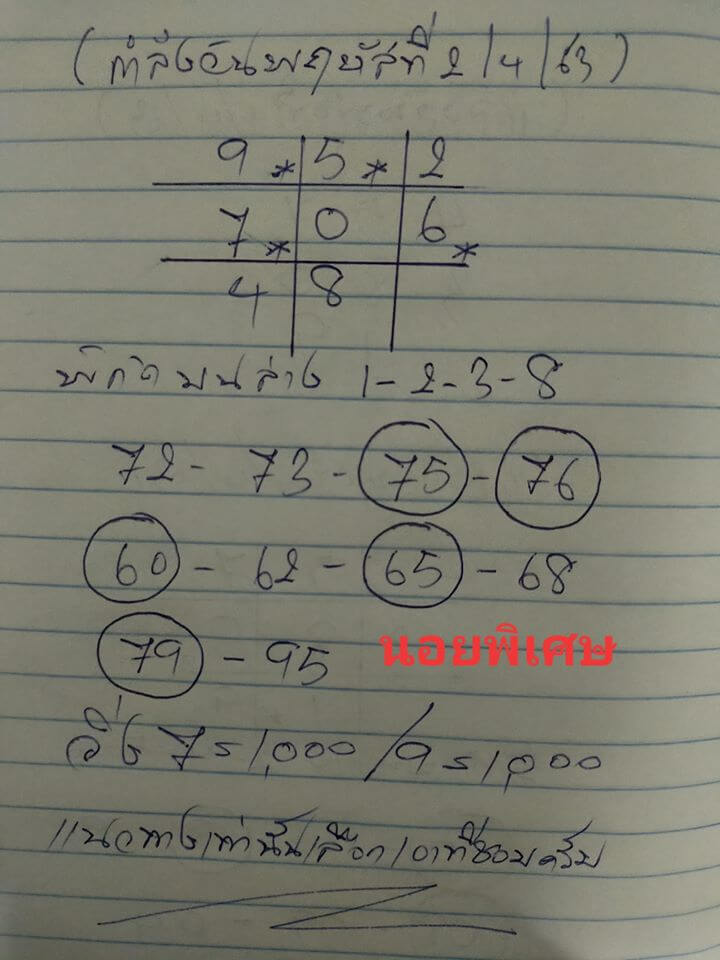 (กำลังวันพฤหัสที่ 2/4/63)
9 * 5 * 2
7 * 0 6 *
4 8
พิกัดบนล่าง 1-2-3-8
72 - 73 - 75 - 76
60 - 62 - 65 - 68
79 - 95
นอยพิเศษ
วิ่ง 7=1,000/9=1,000
แนวทางเท่านั้นเลือกเอาที่ชอบครับ